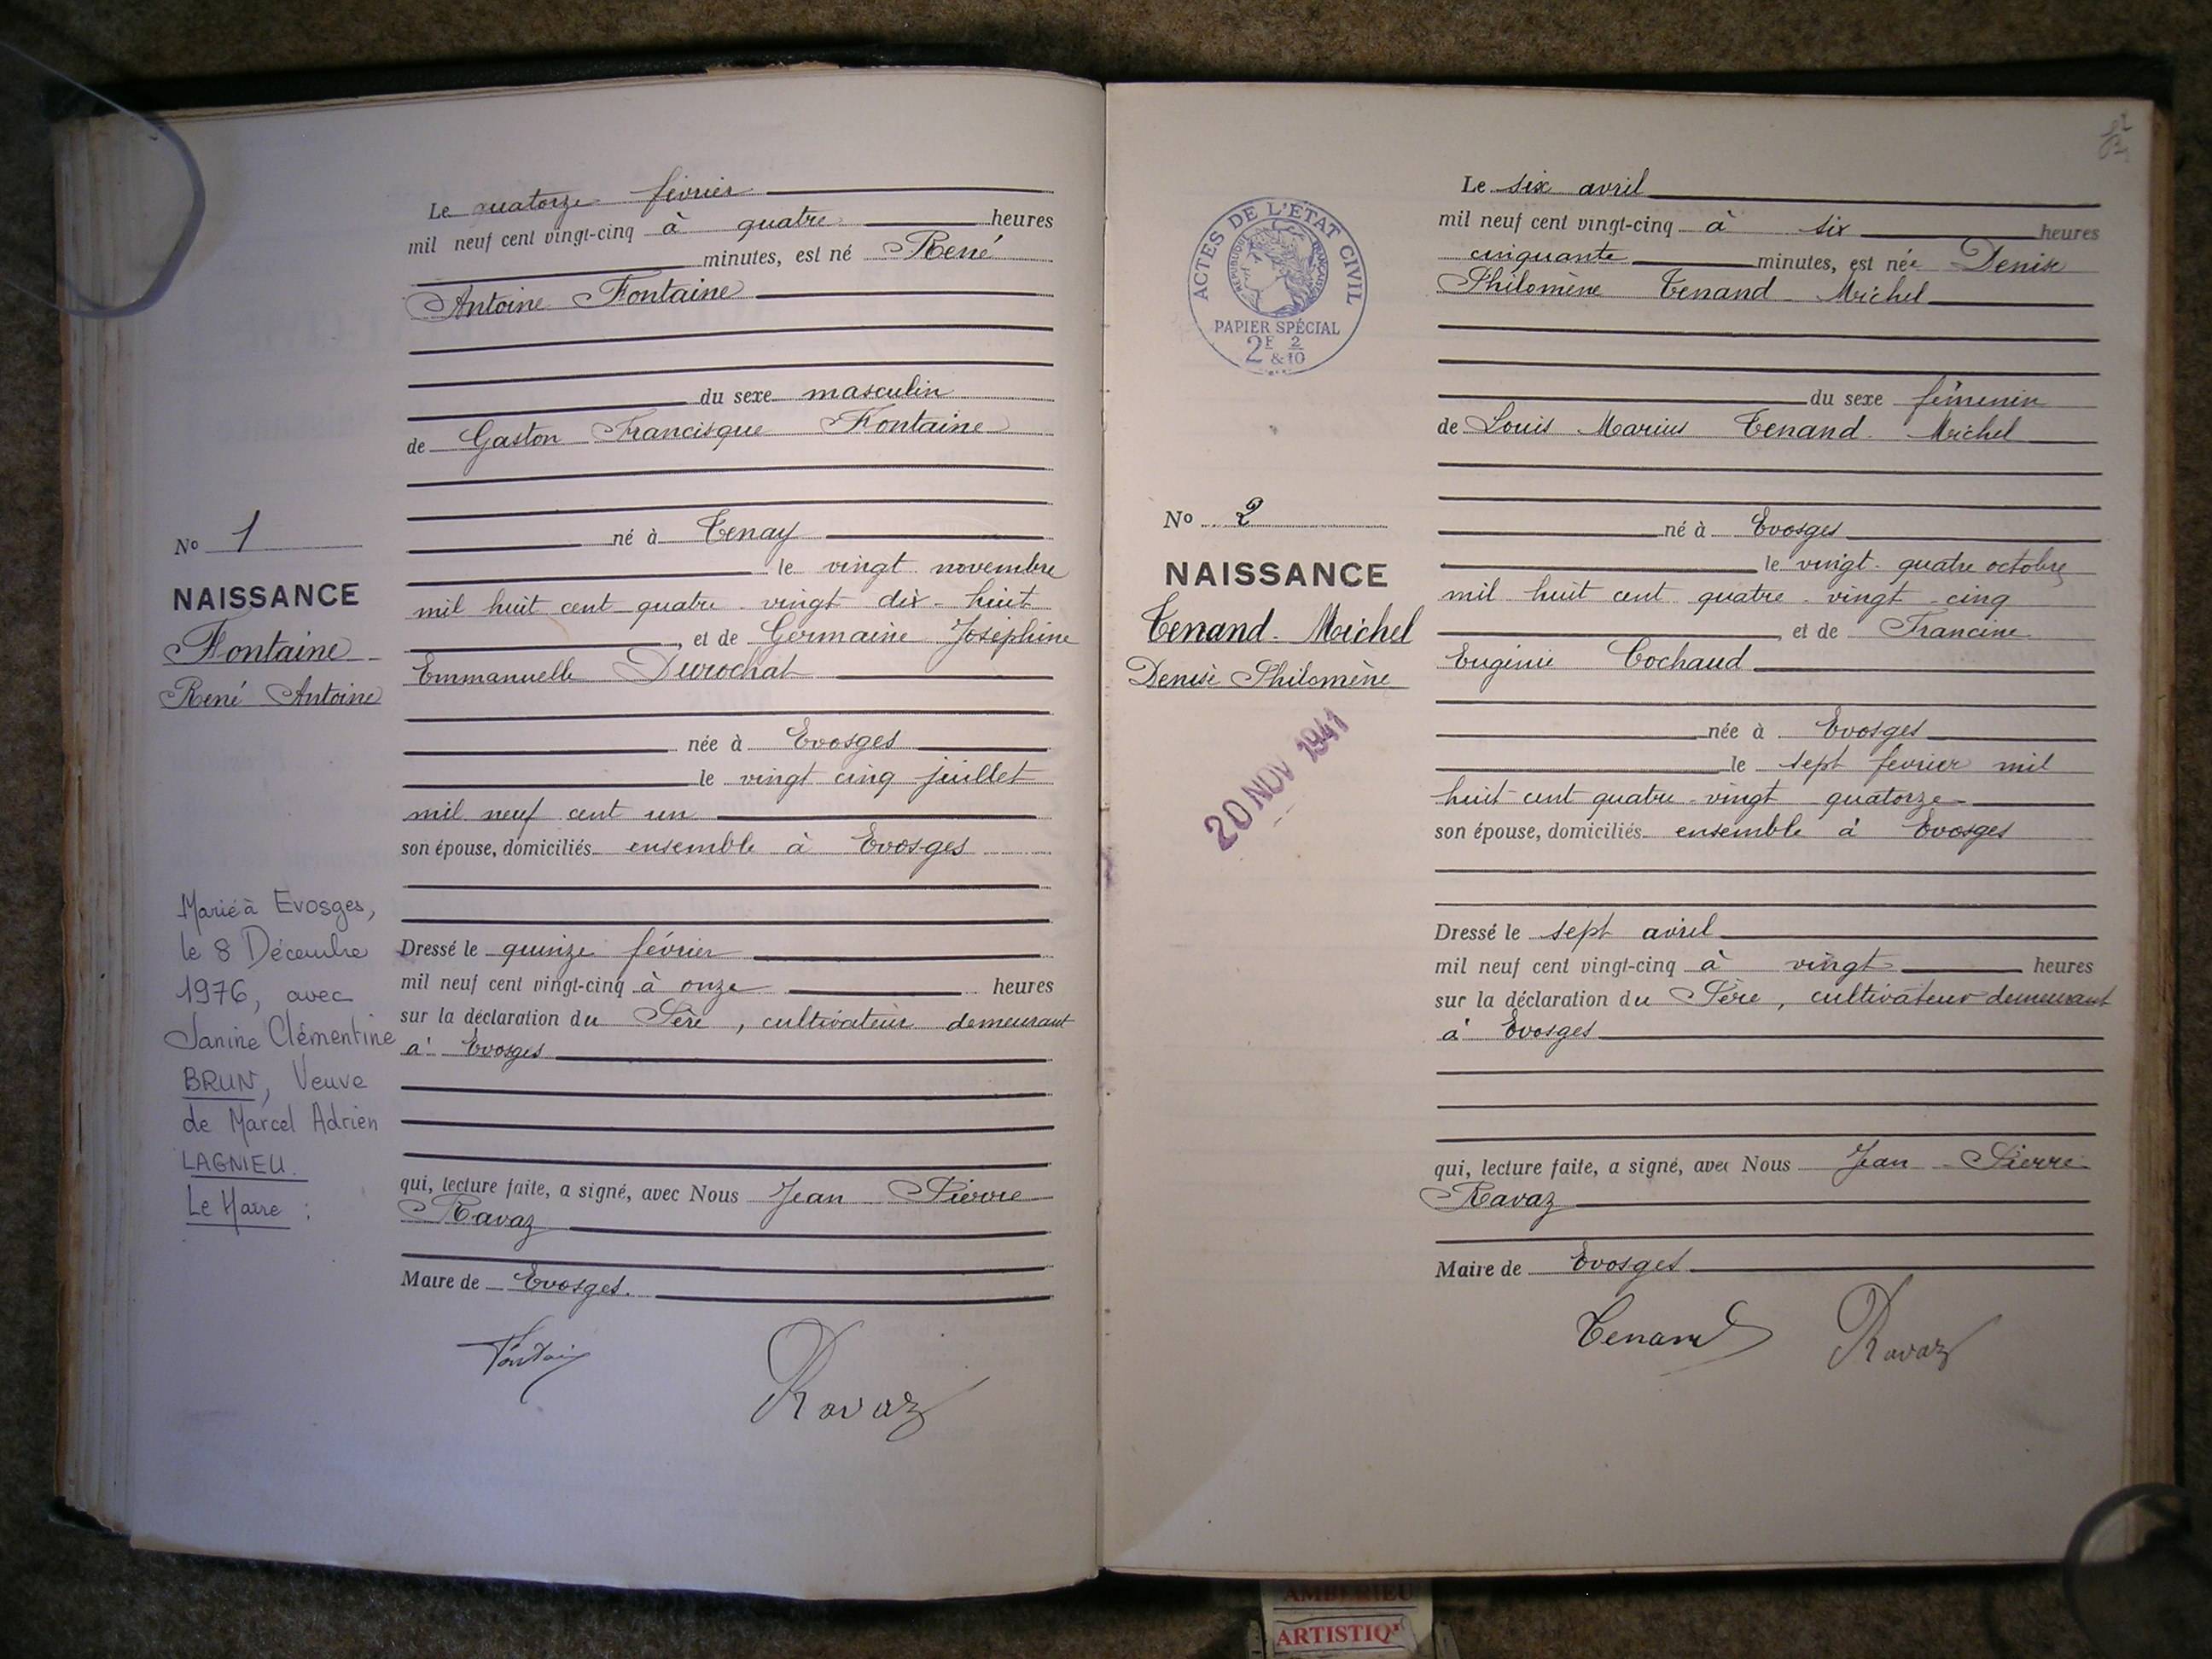 Le quatorze février
mil neuf cent vingt-cinq à quatre heures
minutes, est né René
Antoine Fontaine
du sexe masculin
de Gaston Francisque Fontaine
né à Tenay
le vingt novembre
mil huit cent quatre-vingt dix-huit
, et de Germaine Joséphine
Emmanuelle Durochat
née à Evosges
le vingt cinq juillet
mil neuf cent un
son épouse, domiciliés ensemble à Evosges
Dressé le quinze février
mil neuf cent vingt-cinq à onze heures
sur la déclaration du Père, cultivateur demeurant
à Evosges
qui, lecture faite, a signé, avec Nous Jean Pierre
Ravaz
Maire de Evosges.
Fontaine
Ravaz
No 1
NAISSANCE
Fontaine
René Antoine
Marié à Evosges,
le 8 Décembre
1976, avec
Janine Clémentine
BRUN, Veuve
de Marcel Adrien
LAGNIEU.
Le Maire :
ACTES DE L'ÉTAT CIVIL
RÉPUBLIQUE FRANÇAISE
PAPIER SPÉCIAL
2F 2
& 10
No 2
NAISSANCE
Tenand-Michel
Denise Philomène
20 NOV 1941
Le six avril
mil neuf cent vingt-cinq à six heures
cinquante minutes, est née Denise
Philomène Tenand-Michel
du sexe féminin
de Louis Marius Tenand-Michel
né à Evosges
le vingt-quatre octobre
mil huit cent quatre-vingt-cinq
, et de Francine
Eugénie Cochaud
née à Evosges
le sept février mil
huit cent quatre-vingt quatorze
son épouse, domiciliés ensemble à Evosges
Dressé le sept avril
mil neuf cent vingt-cinq à vingt heures
sur la déclaration du Père, cultivateur demeurant
à Evosges
qui, lecture faite, a signé, avec Nous Jean-Pierre
Ravaz
Maire de Evosges
Tenand Ravaz
AMBERIEU
ARTISTIQ